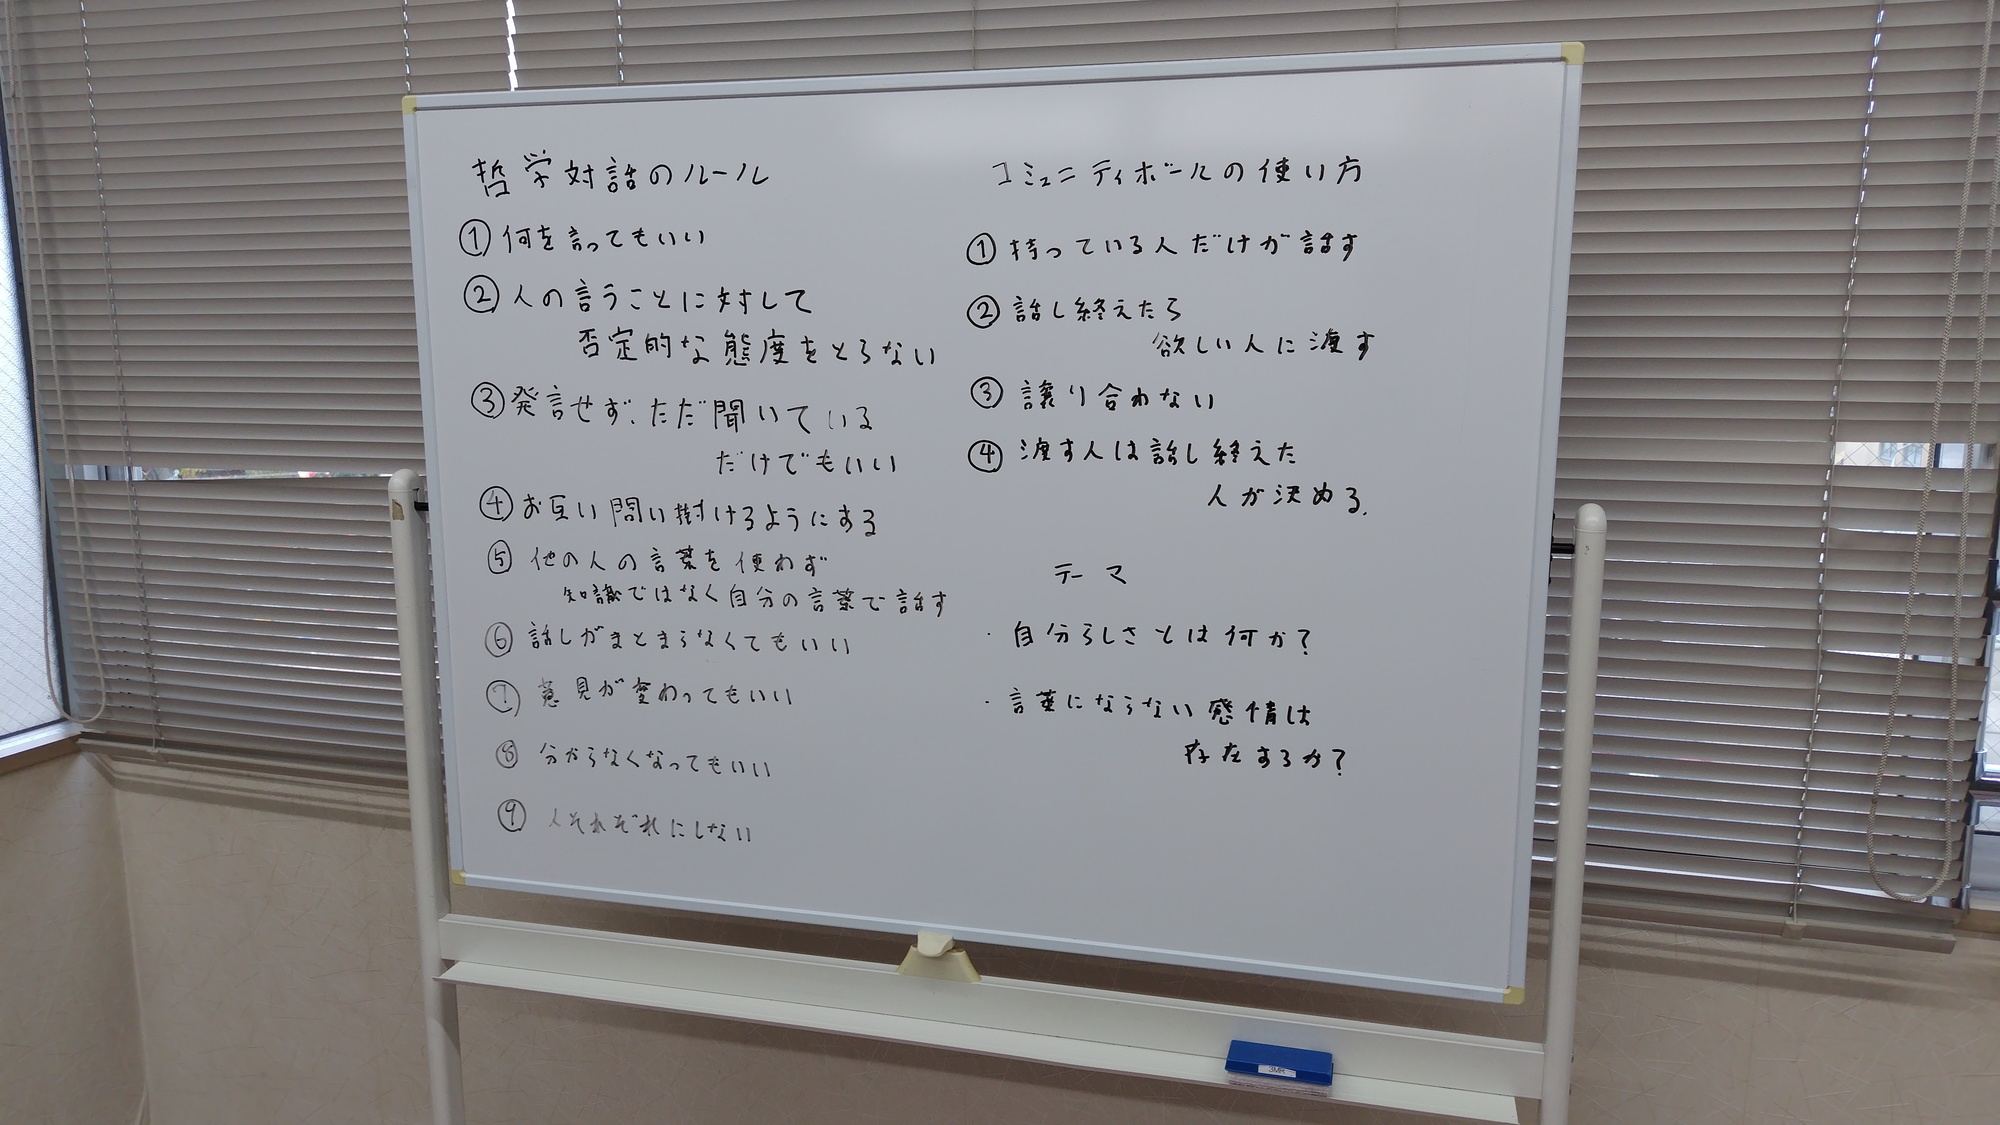 哲学対話のルール
①何を言ってもいい
②人の言うことに対して
否定的な態度をとらない
③発言せず、ただ聞いている
だけでもいい
④お互い問い掛けるようにする
⑤他の人の言葉を使わず
知識ではなく自分の言葉で話す
⑥話しがまとまらなくてもいい
⑦意見が変わってもいい
⑧分からなくなってもいい
⑨人それぞれにしない
コミュニティボールの使い方
①持っている人だけが話す
②話し終えたら
欲しい人に渡す
③譲り合わない
④渡す人は話し終えた
人が決める.
テーマ
・自分らしさとは何か?
・言葉にならない感情は
存在するか?